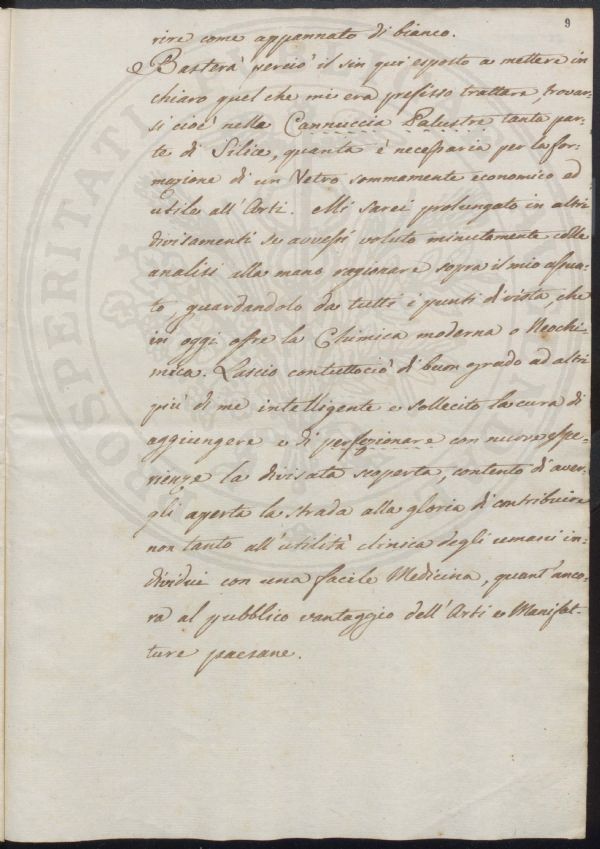 9
rire come appannato di bianco.
Basterà perciò il sin qui esposto a mettere in
chiaro quel che mi era prefisso trattare, trovar-
si cioè nella Cannuccia Palustre tanta par-
te di Silice, quanta è necessaria per la for-
mazione di un Vetro sommamente economico ed
utile all'Arti. Mi sarei prolungato in altri
divisamenti se avessi voluto minutamente colle
analisi alla mano ragionare sopra il mio assun-
to, guardandolo da tutti i punti di vista, che
in oggi offre la Chimica moderna o Neochi-
mica. Lascio contuttociò di buon grado ad altri
più di me intelligente e sollecito la cura di
aggiungere e di perfezionare con nuove espe-
rienze la divisata scoperta, contento di aver-
gli aperta la strada alla gloria di contribuire
non tanto all'utilità clinica degli umani in-
dividui con una facile Medicina, quant'anco-
ra al pubblico vantaggio dell'Arti e Manifat-
ture paesane.
PROSPERITATI PUBLICAE